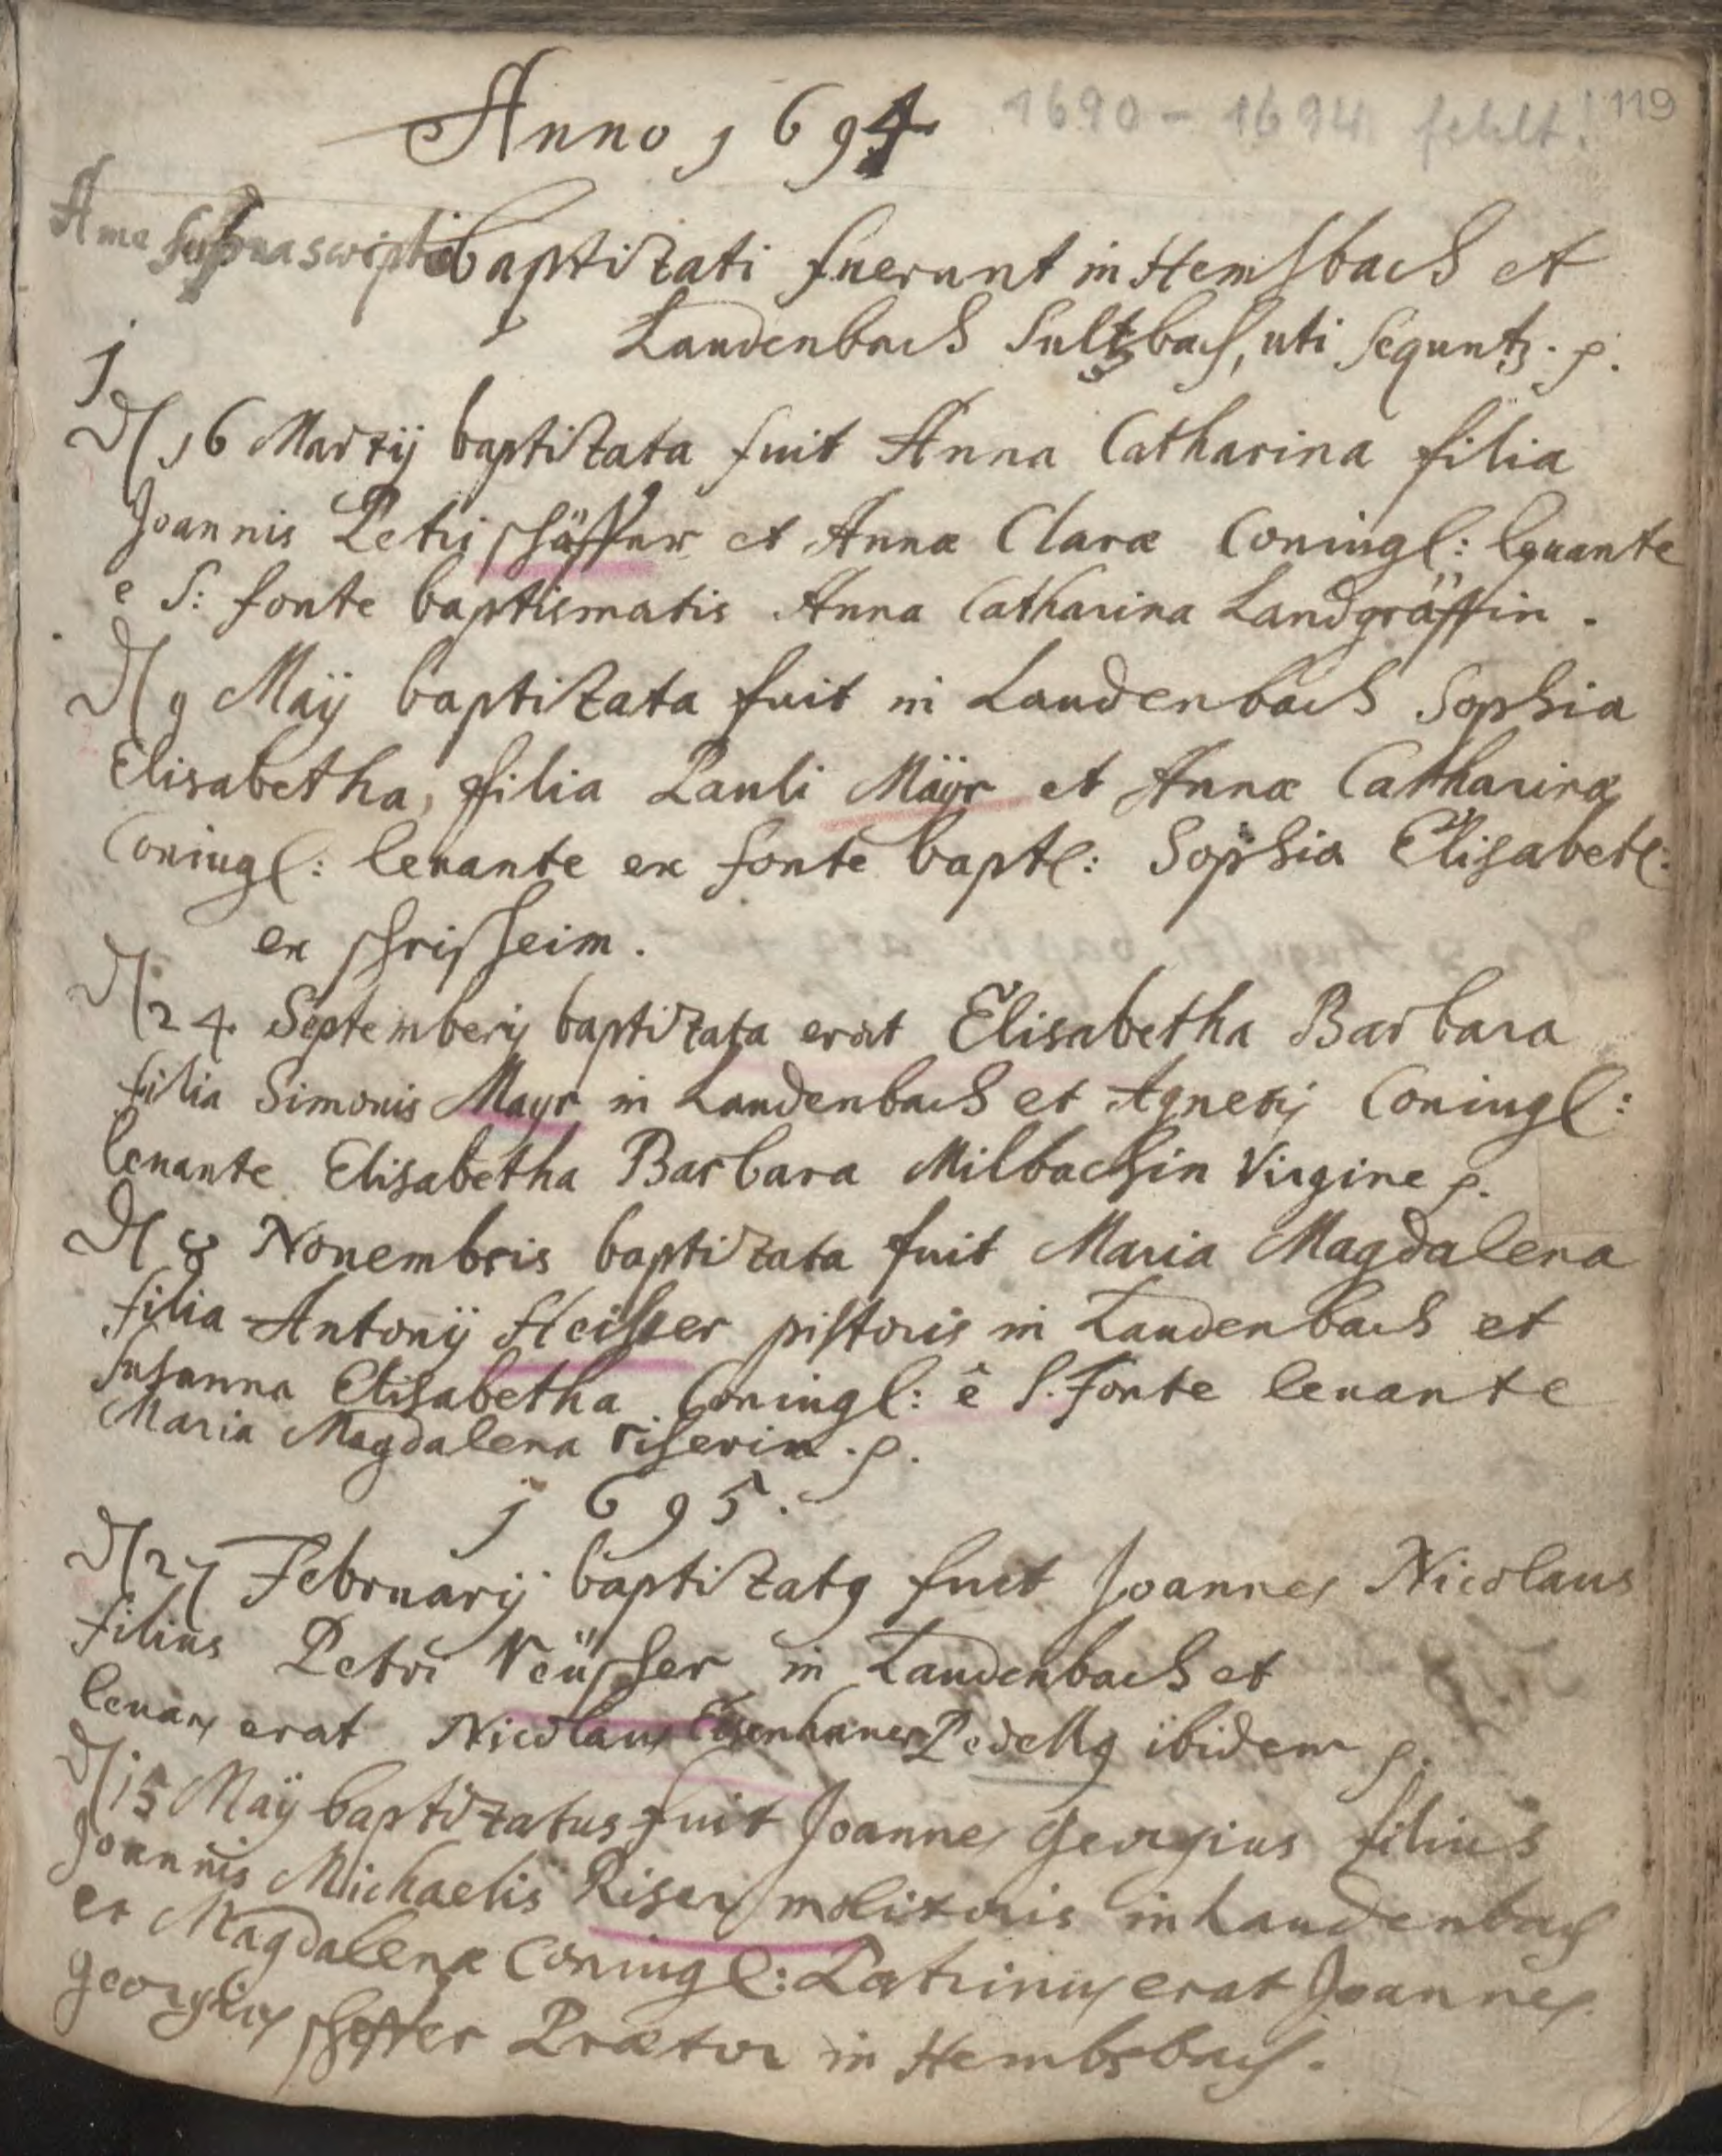 Anno 1694
1690 - 1694 fehlt!
119
supra scripti baptizati fuerunt in Hemsbach et
Laudenbach Sultzbach, uti sequuntz. p.
1
D 16 Martij baptizata fuit Anna Catharina filia
Joannis Petri schäffer et Annæ Claræ Coniugl: levante
e S: fonte baptismatis Anna Catharina Landgräffin.
D 9 Maÿ baptizata fuit in Laudenbach Sophia
Elisabetha, filia Pauli Mäÿr et Annæ Catharinæ
Coniugl: levante ex fonte baptl: Sophia Elisabetl:
ex schrisheim.
D 24 Septemberis baptizata erat Elisabetha Barbara
filia Simonis Mayr in Laudenbach et Agnetis Coniugl:
levante Elisabetha Barbara Milbachin Virgine p.
D 8 Novembris baptizata fuit Maria Magdalena
filia Antonÿ Heisser pistoris in Laudenbach et
Susanna Elisabetha Coniugl: ê S. Fonte levante
Maria Magdalena riserin. p.
1695.
D 27 Februarÿ baptizatg fuit Joannes Nicolaus
filius Petri Neüscher in Laudenbach et
levans erat Nicolaus Eisenhauer Pedellg ibidem p.
D 15 Maÿ baptizatus fuit Joannes Georgius filius
Joannis Michaelis Riser molitoris in Laudenbach
et Magdalenæ Coniugl: Patrinus erat Joannes
Georgius scheffer Prætor in Hembsbach.